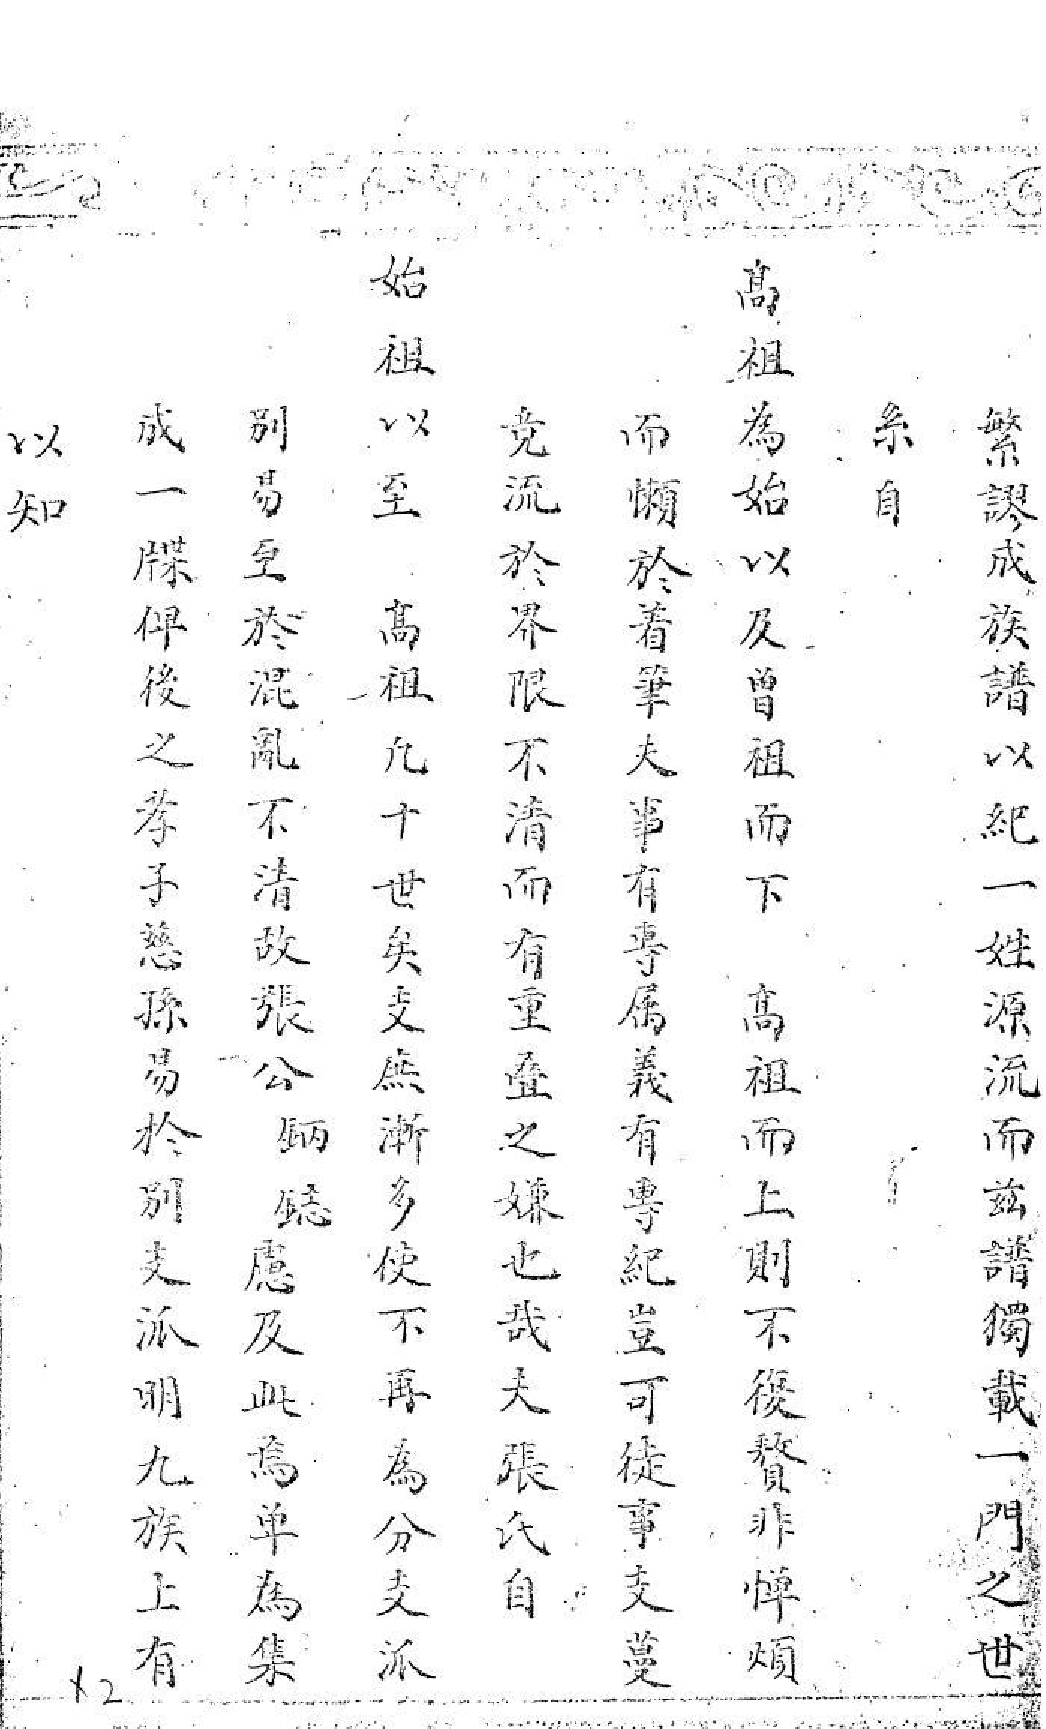 繁謬成族譜以紀一姓源流而兹譜獨載一門之世
系自
髙祖為始以及曾祖而下 髙祖而上則不復贅非憚煩
而懶於着筆夫事有專属義有專紀豈可徒事支蔓
竞流於界限不清而有重叠之嫌也哉夫張氏自
始祖以至 髙祖九十世矣支庶漸多使不再為分支派
别易至於混亂不清故張公 鈵 鋕 慮及此焉单為集
成一牒俾後之孝子慈孫易於别支派明九族上有
以知
12